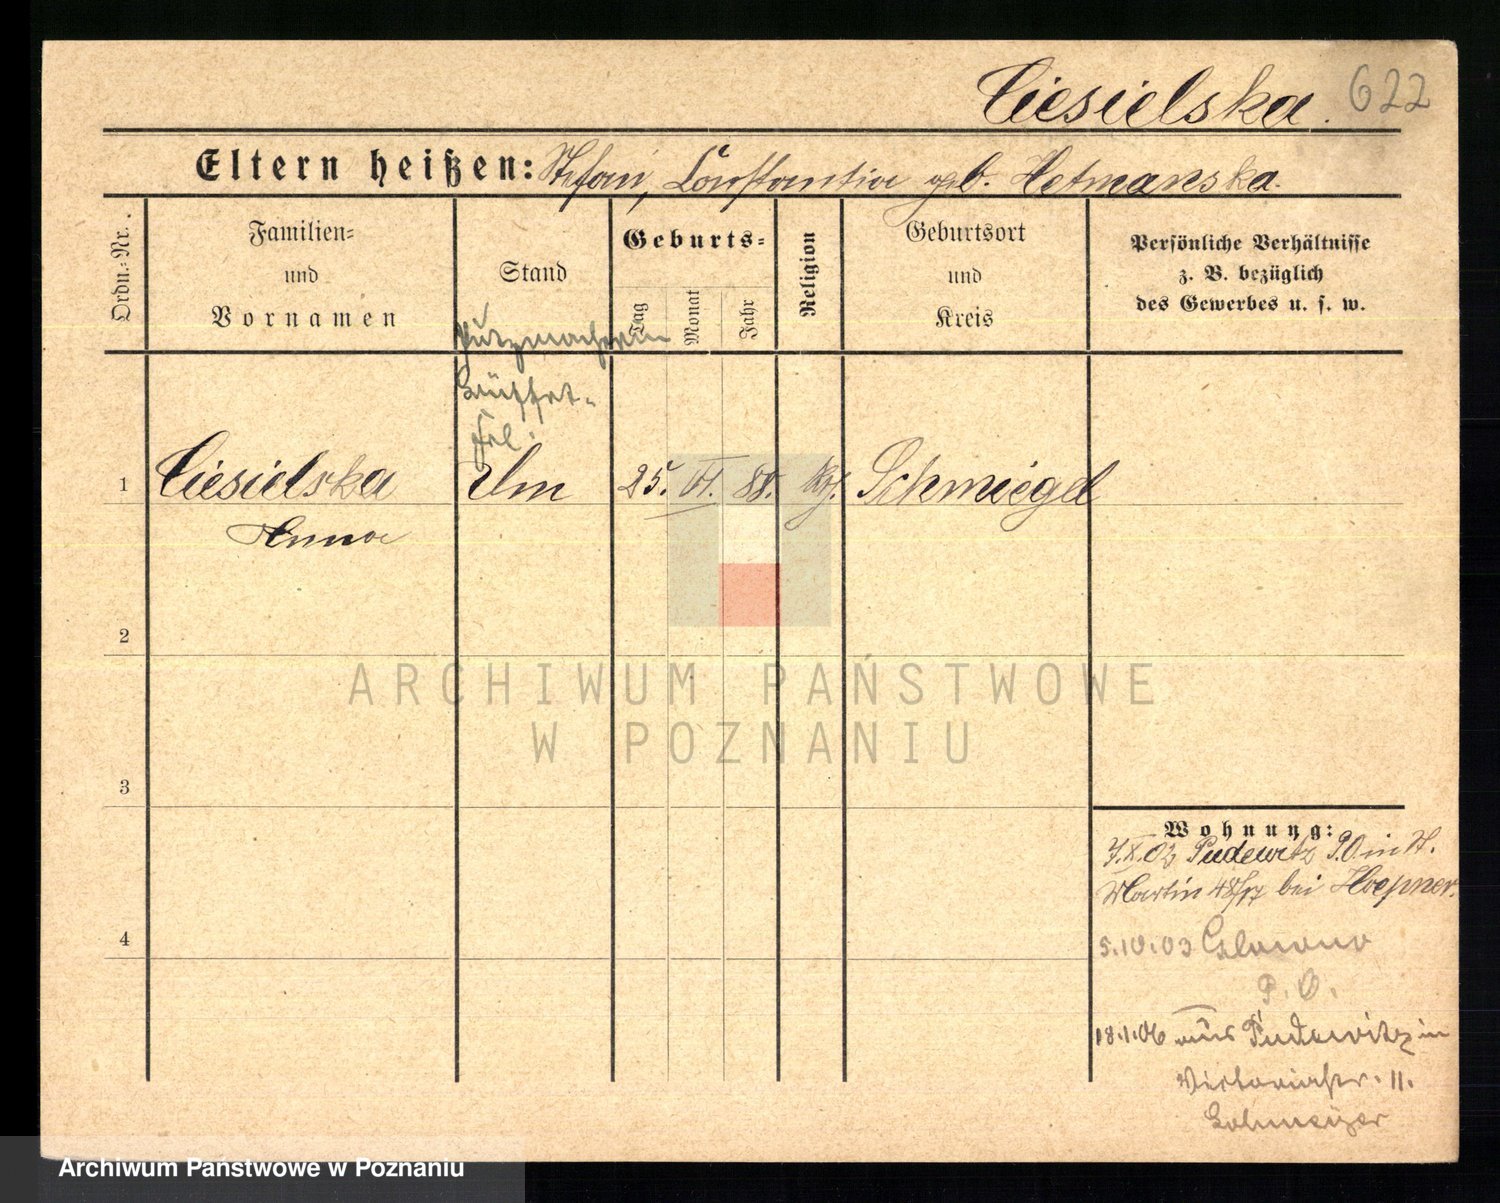 Ciesielska. 622
Eltern heißen: Stefan, Constantia geb. Hetmanska.
Ordn.-Nr.
Familien-
und
Vornamen
Stand
Geburts-
Tag
Monat
Jahr
Religion
Geburtsort
und
Kreis
Persönliche Verhältnisse
z. B. bezüglich
des Gewerbes u. s. w.
Putzmacherin
Büffet-
frl.
1 Ciesielska 25. VI. 88. kth. Schmiegel
Anna
2
3
4
Wohnung:
7.X.02 Pudewitz P.O. in St.
Martin 48/17 bei Hoepner.
5.10.03
P. O.
18.1.06 aus Pudewitz in
Victoriastr. 11.
Lohmeyer
ARCHIWUM PAŃSTWOWE
W POZNANIU
Archiwum Państwowe w Poznaniu